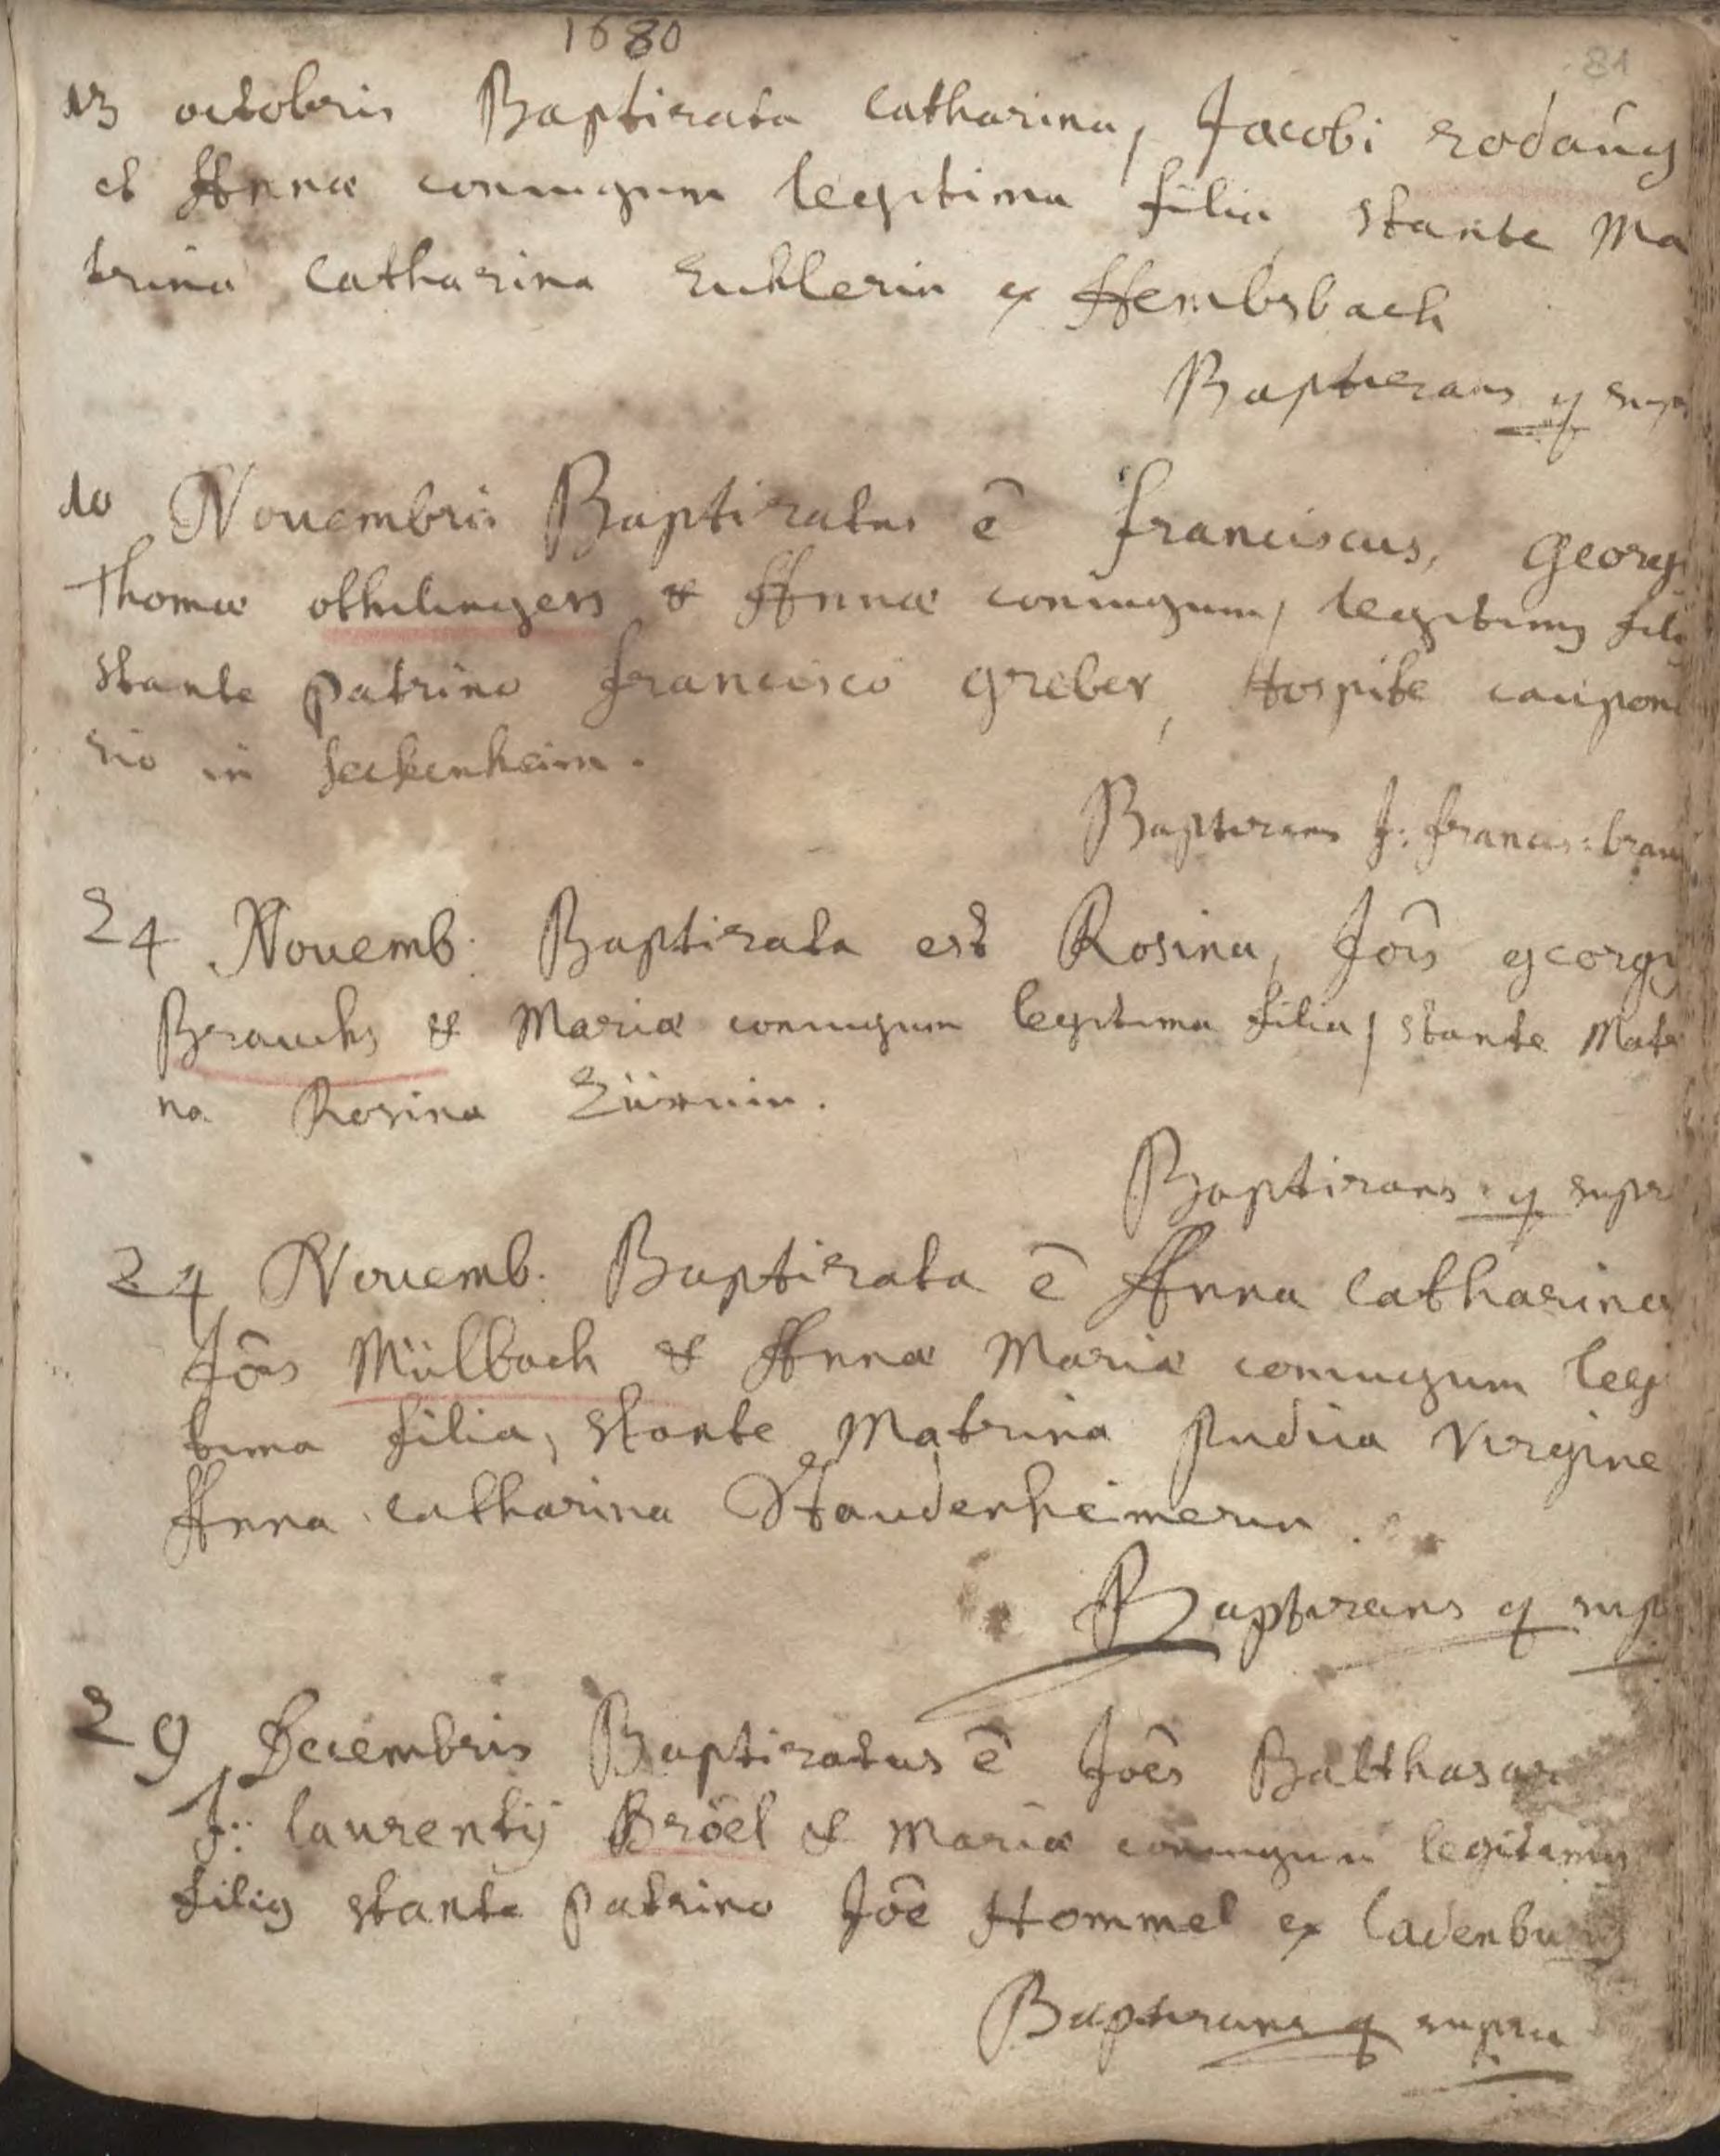 1680
81
13 octobris Baptizata Catharina, Jacobi rodaug
et Annæ coniugum legitima filia stante Ma
trina Catharina ex Hembsbach
Baptizans q sup
10 Nouembris Baptizatus ē franciscus, Georgi
Thomæ othilingers & Annæ coniugum, legitimus fili
stante patrino francisco greber, Hospite caupona
rio in seckenheim.
Baptizans J: francis: brau
24 Nouemb: Baptizata est Rosina, Jōis georgy
Brauchs & Mariæ coniugum legitima filia, stante Matri
na Rosina Zürnin.
Baptizans q supr
24 Nouemb: Baptizata ē Anna Catharina
Jōis Mülbach & Annæ Mariæ coniugum legi
tima filia, stante Matrina pudica Virgine
Anna Catharina Staudenheimerin
Baptizans q sup
29 Decembris Baptizatus ē Joēs Balthasar
J: laurentij Bröel & Mariæ coniugum legitimus
filius stante patrino Joē Hommel ex ladenburg
Baptizans q supra